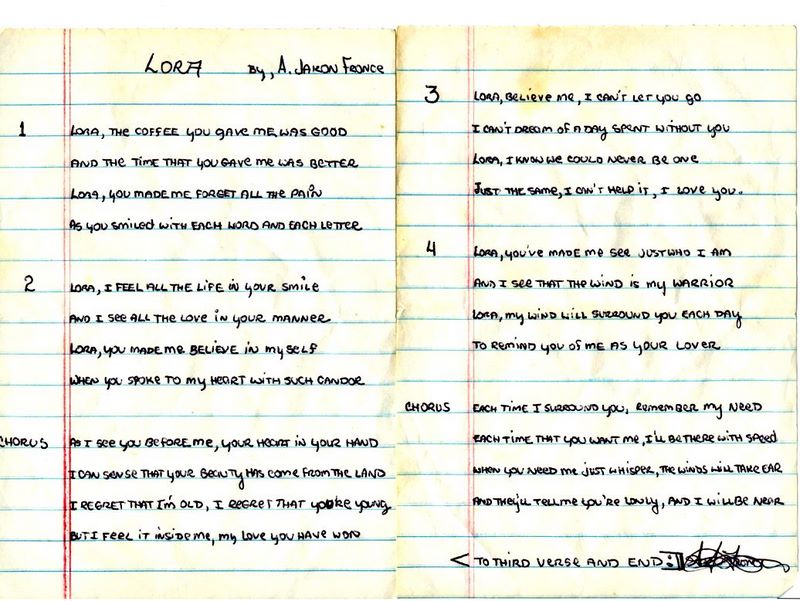 LORA By, A. JARON FRONCE
1 LORA, THE COFFEE YOU GAVE ME WAS GOOD
AND THE TIME THAT YOU GAVE ME WAS BETTER
LORA, YOU MADE ME FORGET ALL THE PAIN
AS YOU SMILED WITH EACH WORD AND EACH LETTER
2 LORA, I FEEL ALL THE LIFE IN YOUR SMILE
AND I SEE ALL THE LOVE IN YOUR MANNER
LORA, YOU MADE ME BELIEVE IN MYSELF
WHEN YOU SPOKE TO MY HEART WITH SUCH CANDOR
CHORUS AS I SEE YOU BEFORE ME, YOUR HEART IN YOUR HAND
I CAN SENSE THAT YOUR BEAUTY HAS COME FROM THE LAND
I REGRET THAT I'M OLD, I REGRET THAT YOU'RE YOUNG
BUT I FEEL IT INSIDE ME, MY LOVE YOU HAVE WON
3 LORA, BELIEVE ME, I CAN'T LET YOU GO
I CAN'T DREAM OF A DAY SPENT WITHOUT YOU
LORA, I KNOW WE COULD NEVER BE ONE
JUST THE SAME, I CAN'T HELP IT, I LOVE YOU.
4 LORA, YOU'VE MADE ME SEE JUST WHO I AM
AND I SEE THAT THE WIND IS MY WARRIOR
LORA, MY WIND WILL SURROUND YOU EACH DAY
TO REMIND YOU OF ME AS YOUR LOVER
CHORUS EACH TIME I SURROUND YOU, REMEMBER MY NEED
EACH TIME THAT YOU WANT ME, I'LL BE THERE WITH SPEED
WHEN YOU NEED ME JUST WHISPER, THE WINDS WILL TAKE EAR
AND THEY'LL TELL ME YOU'RE LONLY, AND I WILL BE NEAR
< TO THIRD VERSE AND END